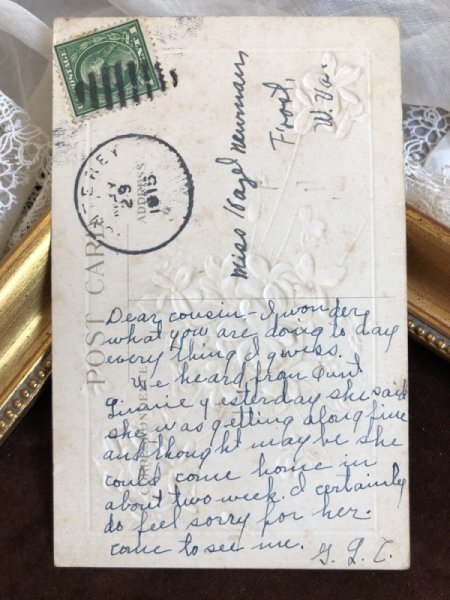 U.S. POSTAGE
TEREY
29
1915
POST CARD
ADDRESS
CORRESPONDENCE
Miss Hazel Newman
Frost,
W. Va.
Dear cousin, I wonder
what you are doing to day
every thing I guess.
We heard from Aunt
yesterday she said
she was getting along fine
and thought may be she
could come home in
about two week. I certainley
do feel sorry for her.
come to see me. G. L. C.